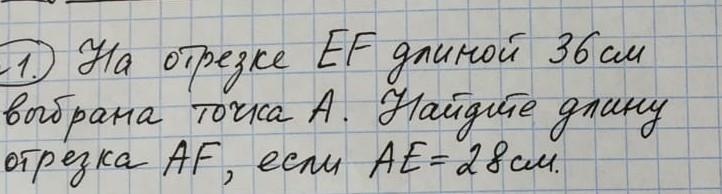 1. На отрезке EF длиной 36 см
выбрана точка A. Найдите длину
отрезка AF, если AE = 28 см.